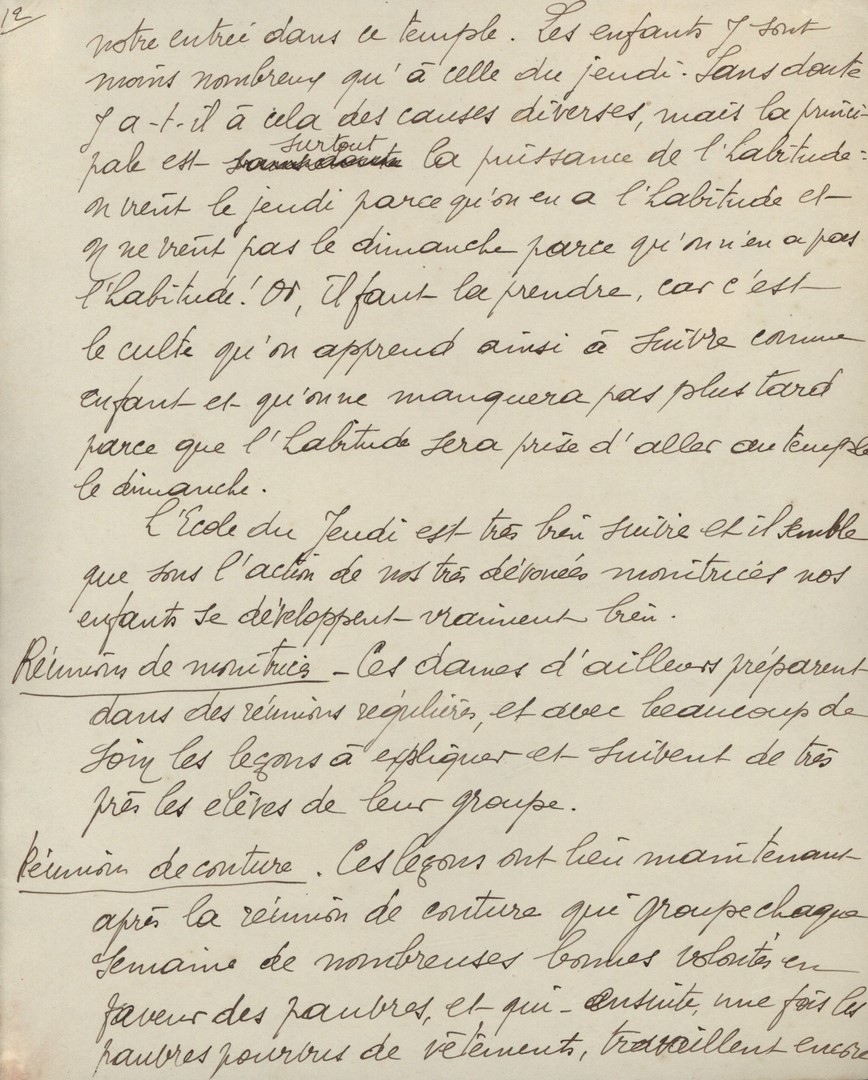 12
notre entrée dans ce temple. Les enfants y sont
moins nombreux qu'à celle du jeudi. Sans doute
y a-t-il à cela des causes diverses, mais la princi-
pale est sans doute surtout la puissance de l'habitude :
on vient le jeudi parce qu'on en a l'habitude et
on ne vient pas le dimanche parce qu'on n'en a pas
l'habitude! Or, il faut la prendre, car c'est
le culte qu'on apprend ainsi à suivre comme
enfant et qu'on ne manquera pas plus tard
parce que l'habitude sera prise d'aller au temple
le dimanche.
L'Ecole du Jeudi est très bien suivie et il semble
que sous l'action de nos très dévouées monitrices nos
enfants se développent vraiment bien.
Réunions de monitrices - Ces dames d'ailleurs préparent
dans des réunions régulières, et avec beaucoup de
soin les leçons à expliquer et suivent de très
près les élèves de leur groupe.
Réunions de couture. Ces leçons ont lieu maintenant
après la réunion de couture qui groupe chaque
semaine de nombreuses bonnes volontés en
faveur des pauvres, et qui - ensuite, une fois les
pauvres pourvus de vêtements, travaillent encore